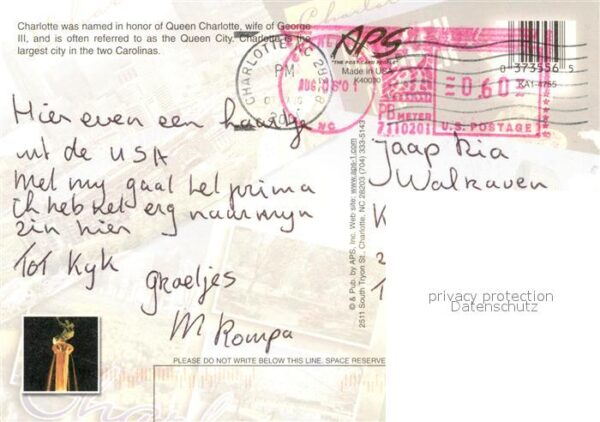 Charlotte was named in honor of Queen Charlotte, wife of George
III, and is often referred to as the Queen City. Charlotte is the
largest city in the two Carolinas.
CHARLOTTE NC
PM
2001
AUG 08 01
NC
APS
"THE POSTCARD PEOPLE"
Made in USA
K40030
0.60
PB
METER
7110201
U.S. POSTAGE
0 373556 5
KA1-4755
Hier even een kaartje
uit de USA
Met my gaat het prima
ik heb het erg naar myn
zin hier
TOT Kyk
groetjes
M Rompa
Jaap Ria
Walraven
K
2
T
© & Pub. by APS, Inc. Web site: www.aps-1.com
2511 South Tryon St., Charlotte, NC 28203 (704) 333-5143
privacy protection
Datenschutz
PLEASE DO NOT WRITE BELOW THIS LINE. SPACE RESERVE